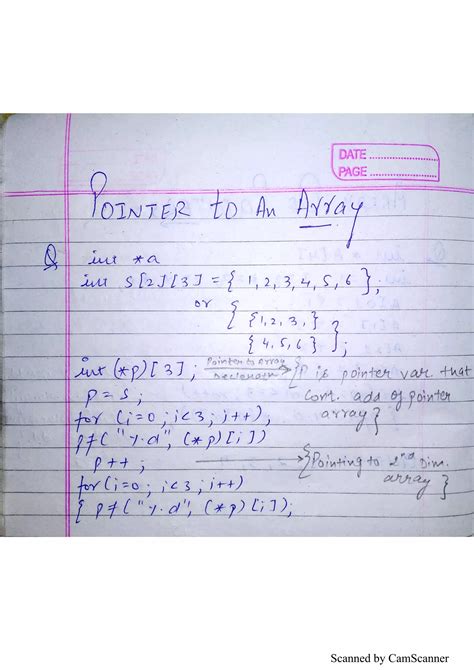 DATE
PAGE
POINTER to An Array
Q int *a
int S[2][3] = { 1,2,3,4,5,6 };
or { {1,2,3,}
{4,5,6} };
int (*p)[3]; Pointer to array Declaration {P is pointer var. that
p = s; cont. add of pointer
for (i=0; i<3; i++), array}
pf("%d", (*p)[i])
p++; {Pointing to 2nd Dim.
for(i=0; i<3; i++) array}
{ pf("%d", (*p)[i]);
Scanned by CamScanner